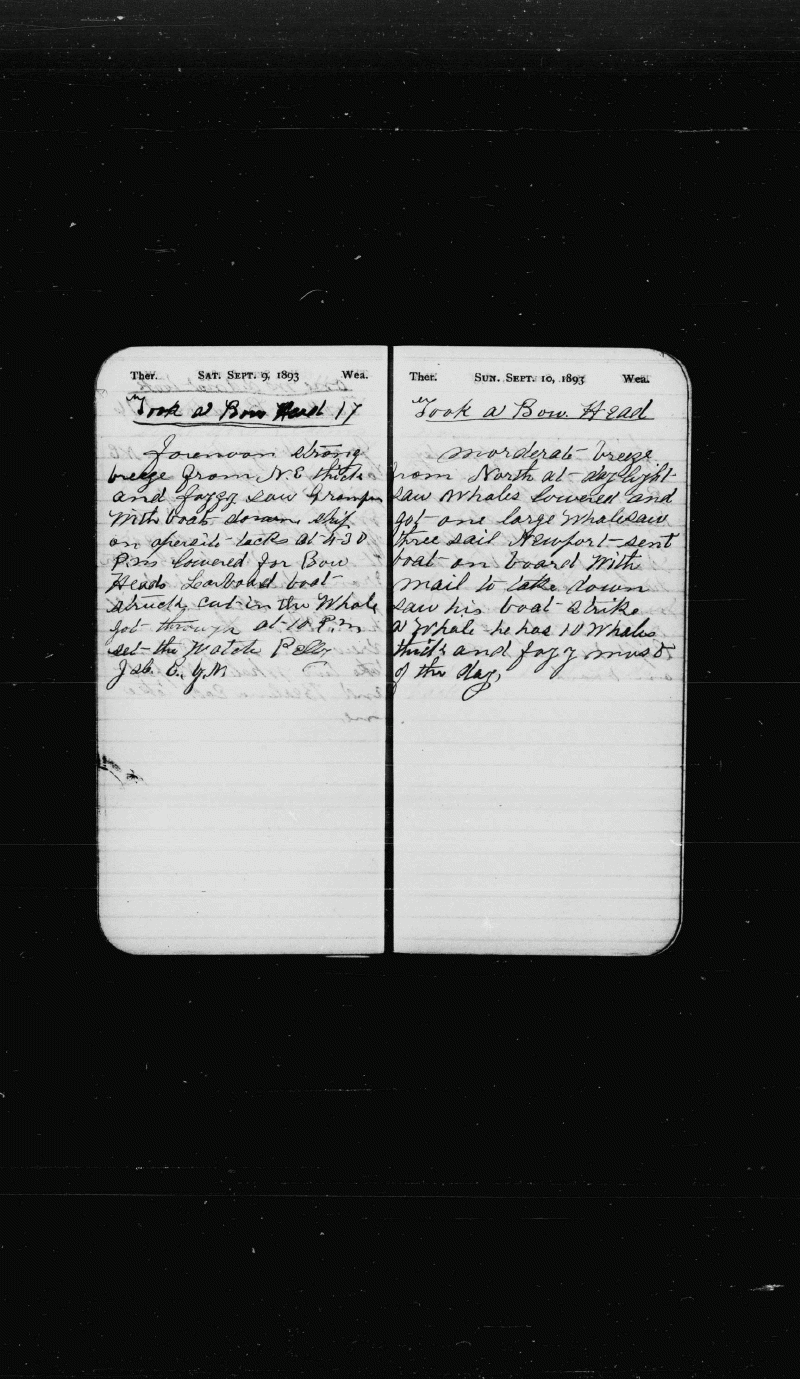 Ther. SAT. SEPT. 9, 1893 Wea.
Took a Bow Head 17
Forenoon strong
breeze from N.E thick
and foggy saw Grampus
With boats down, ship
on opersite tacks at 4-30
P.m lowered for Bow
Heads Larboard boat
struck, cut in the Whale
got through at 10 P.m
set the Watch
Ther. SUN. SEPT. 10, 1893 Wea.
Took a Bow Head
morderate breeze
from North at daylight
saw Whales lowered and
got one large Whale saw
three sail Newport sent
boat on board With
mail to take down
saw his boat strike
a Whale he has 10 Whales
thick and fogy most
of the day,